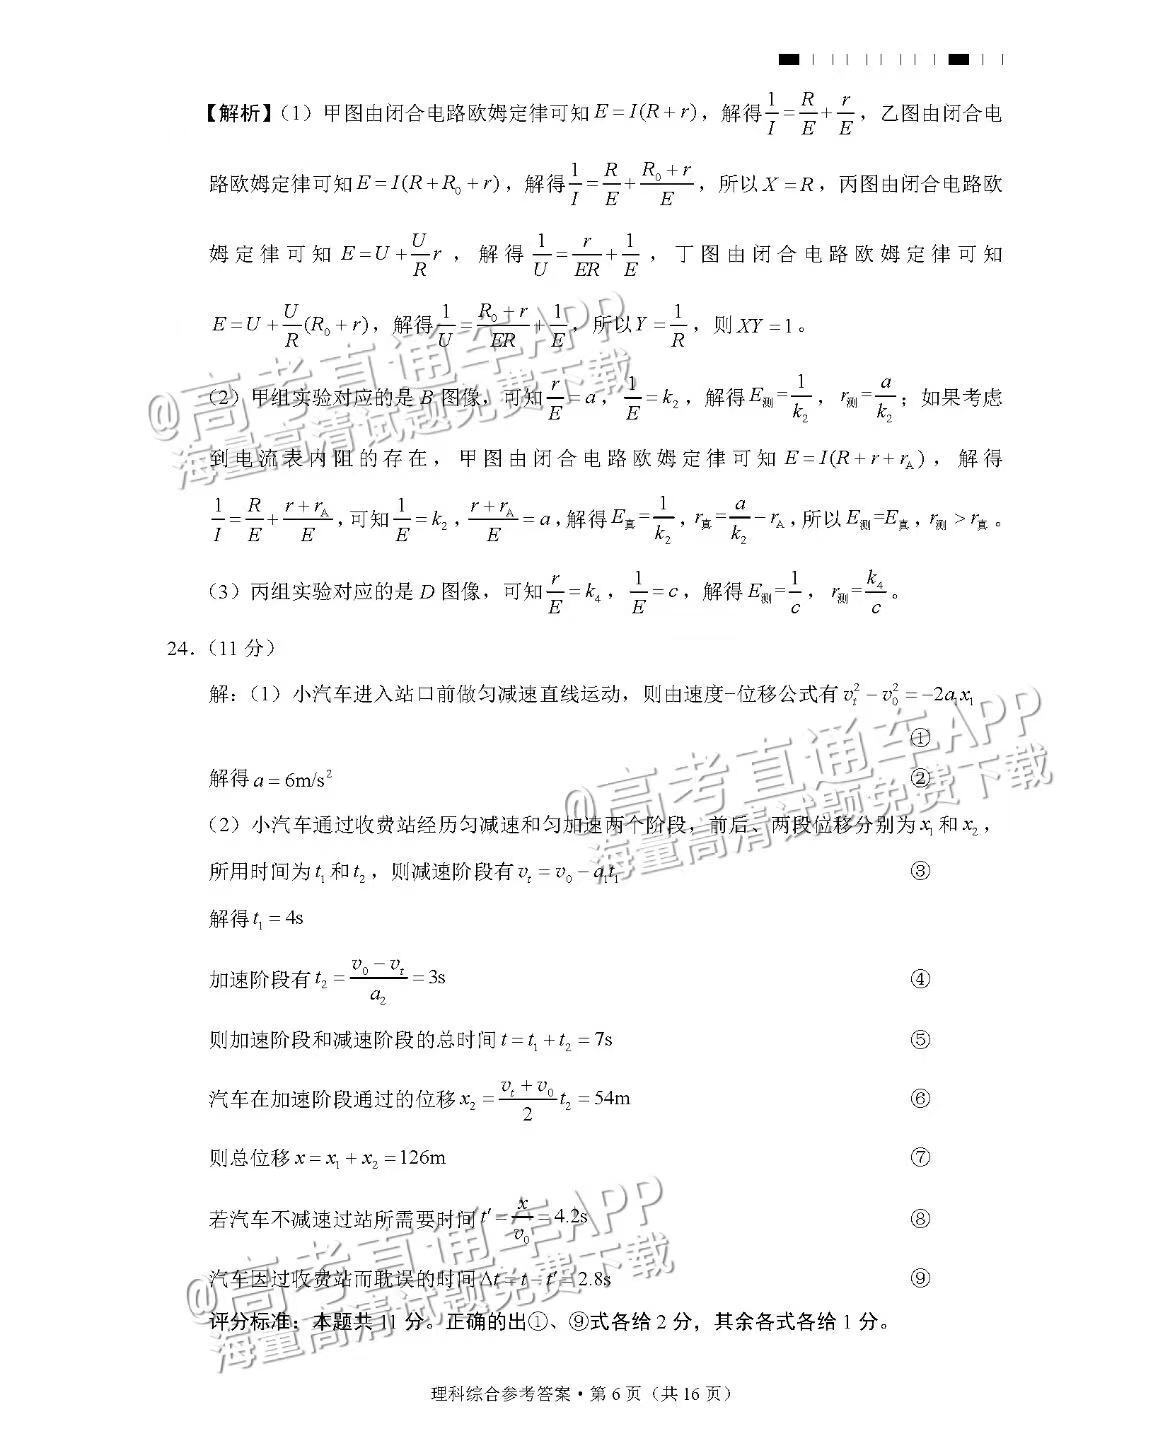 【解析】（1）甲图由闭合电路欧姆定律可知 E=I(R+r)，解得 1/I=R/E+r/E，乙图由闭合电
路欧姆定律可知 E=I(R+R₀+r)，解得 1/I=R/E+(R₀+r)/E，所以 X=R，丙图由闭合电路欧
姆定律可知 E=U+(U/R)r，解得 1/U=r/(ER)+1/E，丁图由闭合电路欧姆定律可知
E=U+(U/R)(R₀+r)，解得 1/U=(R₀+r)/(ER)+1/E，所以 Y=1/R，则 XY=1。
（2）甲组实验对应的是 B 图像，可知 r/E=a，1/E=k₂，解得 E测=1/k₂，r测=a/k₂；如果考虑
到电流表内阻的存在，甲图由闭合电路欧姆定律可知 E=I(R+r+r_A)，解得
1/I=R/E+(r+r_A)/E，可知 1/E=k₂，(r+r_A)/E=a，解得 E真=1/k₂，r真=a/k₂−r_A，所以 E测=E真，r测>r真。
（3）丙组实验对应的是 D 图像，可知 r/E=k₄，1/E=c，解得 E测=1/c，r测=k₄/c。
24.（11 分）
解：（1）小汽车进入站口前做匀减速直线运动，则由速度-位移公式有 vₜ²−v₀²=−2a₁x₁
①
解得 a=6m/s² ②
（2）小汽车通过收费站经历匀减速和匀加速两个阶段，前后、两段位移分别为 x₁ 和 x₂，
所用时间为 t₁ 和 t₂，则减速阶段有 vₜ=v₀−a₁t₁ ③
解得 t₁=4s
加速阶段有 t₂=(v₀−vₜ)/a₂=3s ④
则加速阶段和减速阶段的总时间 t=t₁+t₂=7s ⑤
汽车在加速阶段通过的位移 x₂=(vₜ+v₀)/2 t₂=54m ⑥
则总位移 x=x₁+x₂=126m ⑦
若汽车不减速过站所需要时间 t′=x/v₀=4.2s ⑧
汽车因过收费站而耽误的时间 Δt=t−t′=2.8s ⑨
评分标准：本题共 11 分。正确的出①、⑨式各给 2 分，其余各式各给 1 分。
理科综合参考答案·第 6 页（共 16 页）
@高考直通车APP
海量高清试题免费下载
@高考直通车APP
海量高清试题免费下载
@高考直通车APP
海量高清试题免费下载